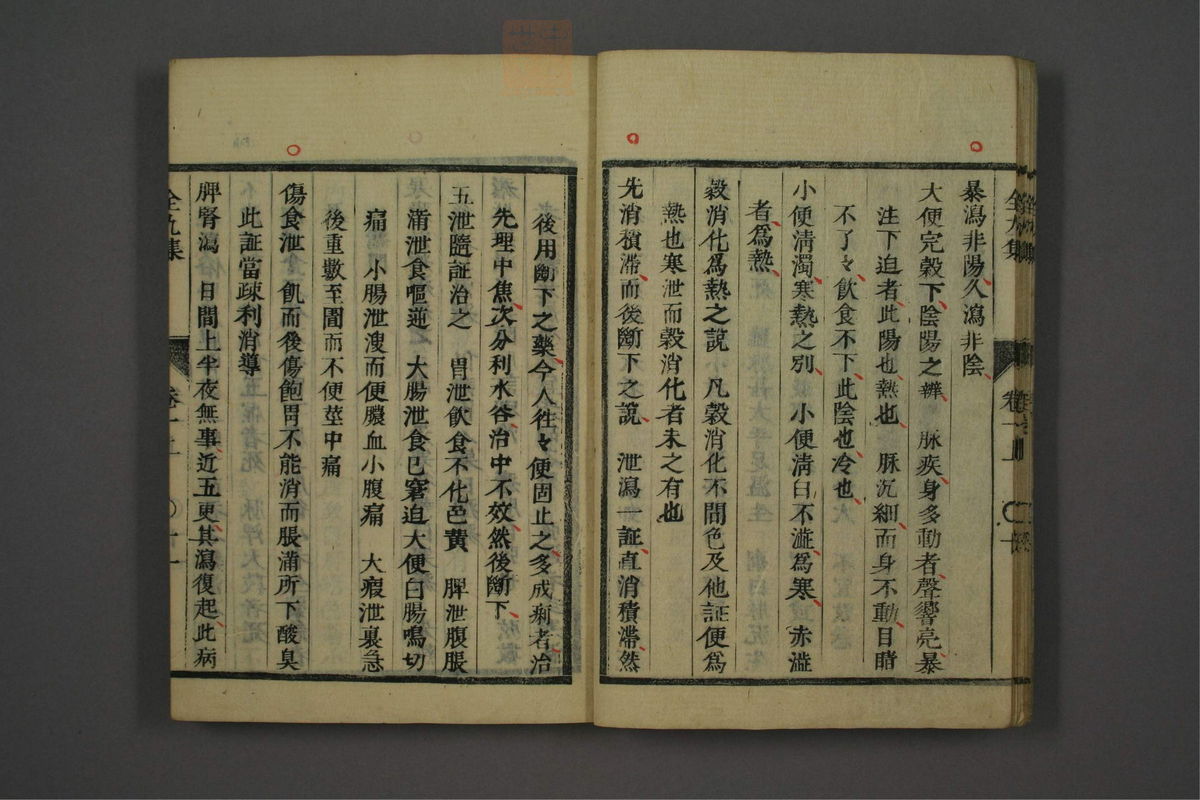 暴瀉非陽久瀉非陰
大便完穀下陰陽之辨 脉疾身多動者聲響亮暴
注下迫者此陽也熱也 脉沉細而身不動目睛
不了々飲食不下此陰也冷也
小便淸濁寒熱之別 小便淸白不澁爲寒 赤澁
者爲熱
穀消化爲熱之說 凡穀消化不問色及他証便爲
熱也寒泄而穀消化者未之有也
先消積滯而後斷下之說 泄瀉一証直消積滯然
後用斷下之藥今人往々便固止之多成痢者治
先理中焦次分利水谷治中不效然後斷下
五泄隨証治之 胃泄飲食不化色黄 脾泄腹脹
滿泄食嘔逆 大腸泄食已窘迫大便白腸鳴切
痛 小腸泄溲而便膿血小腹痛 大瘕泄裏急
後重數至圊而不便莖中痛
傷食泄 飢而後傷飽胃不能消而脹滿所下酸臭
此証當疎利消導
脾腎瀉 日間上半夜無事近五更其瀉復起此病
全九集
卷一上
全九集
卷一上